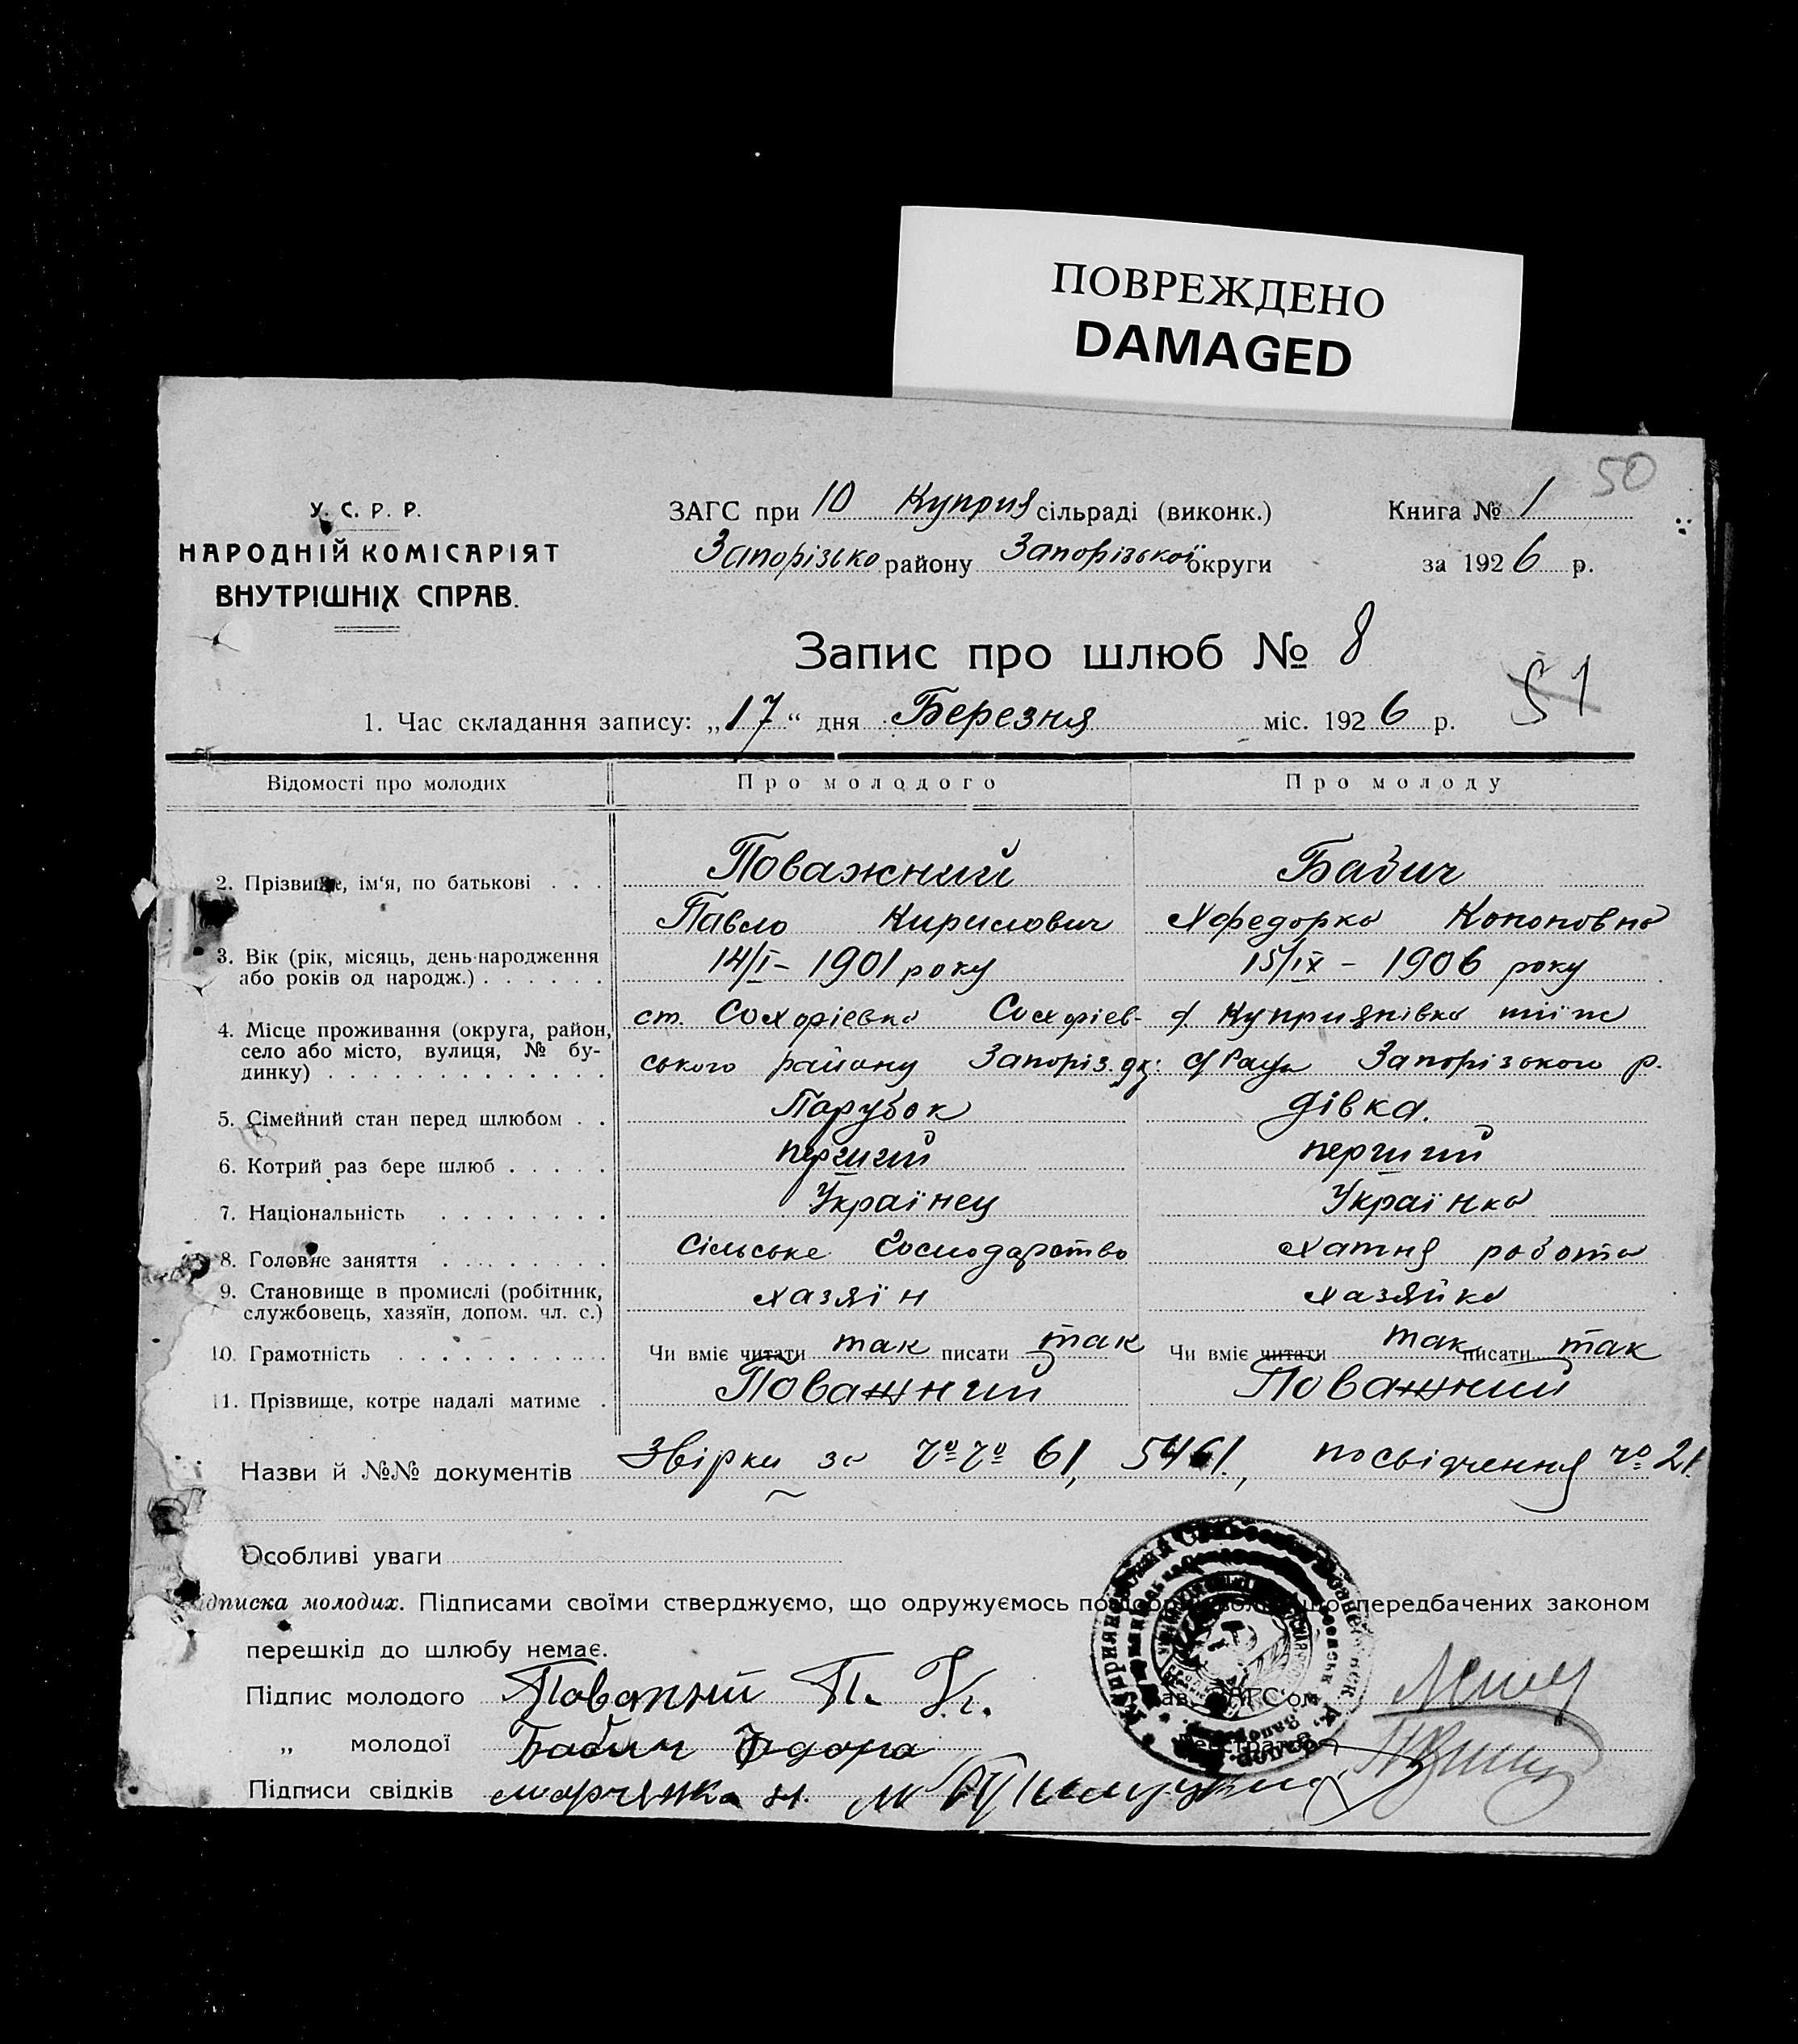 ПОВРЕЖДЕНО
DAMAGED
50
У. С. Р. Р.
НАРОДНІЙ КОМІСАРІЯТ
ВНУТРІШНІХ СПРАВ.
ЗАГС при 10 Куприя сільраді (виконк.)
Запорізько району Запорізької округи
Книга № 1
за 1926 р.
Запис про шлюб № 8
51
1. Час складання запису: „17“ дня Березня міс. 1926 р.
Відомості про молодих Про молодого Про молоду
2. Прізвище, ім‘я, по батькові . . . Поважний Бабич
Павло Кирилович Хфедорка Кононовна
3. Вік (рік, місяць, день народження
або років од народж.) . . . . . . 14/I – 1901 року 15/IX – 1906 року
4. Місце проживання (округа, район,
село або місто, вулиця, № бу-
динку) . . . . . . . . . . . . .
ст. Софіевка Софіев-
ського району Запоріз. ок:
с. Куприянівка тиїж
с/Ради Запорізького р.
5. Сімейний стан перед шлюбом . . Парубок дівка.
6. Котрий раз бере шлюб . . . . . перший перший
7. Національність . . . . . . . . Українец Українка
8. Головне заняття . . . . . . . . Сільське Господарство хатня робота
9. Становище в промислі (робітник,
службовець, хазяїн, допом. чл. с.) хазяїн хазяйка
10. Грамотність . . . . . . . . . . Чи вміє читати так писати так Чи вміє читати так писати так
11. Прізвище, котре надалі матиме . Поважний Поважний
Назви й №№ документів Звірки за №№ 61, 5461., посвідчення № 21.
Особливі уваги
писка молодих. Підписами своїми стверджуємо, що одружуємось по передбачених законом
перешкід до шлюбу немає.
Підпис молодого Поважний П. К.
„ молодої Бабич Федора
Підписи свідків